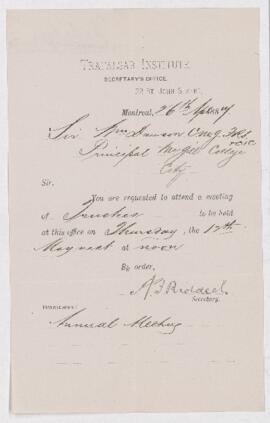 TRAFALGAR INSTITUTE.
SECRETARY'S OFFICE.
22 ST. JOHN STREET,
Montreal, 26th Apl 1887
Sir Wm Dawson CMG FRS
Principal McGill College
City
Sir.
You are requested to attend a meeting
of Trustees to be held
at this office on Thursday, the 12th
May next at noon
By order,
A F Riddell
Secretary.
Annual Meeting